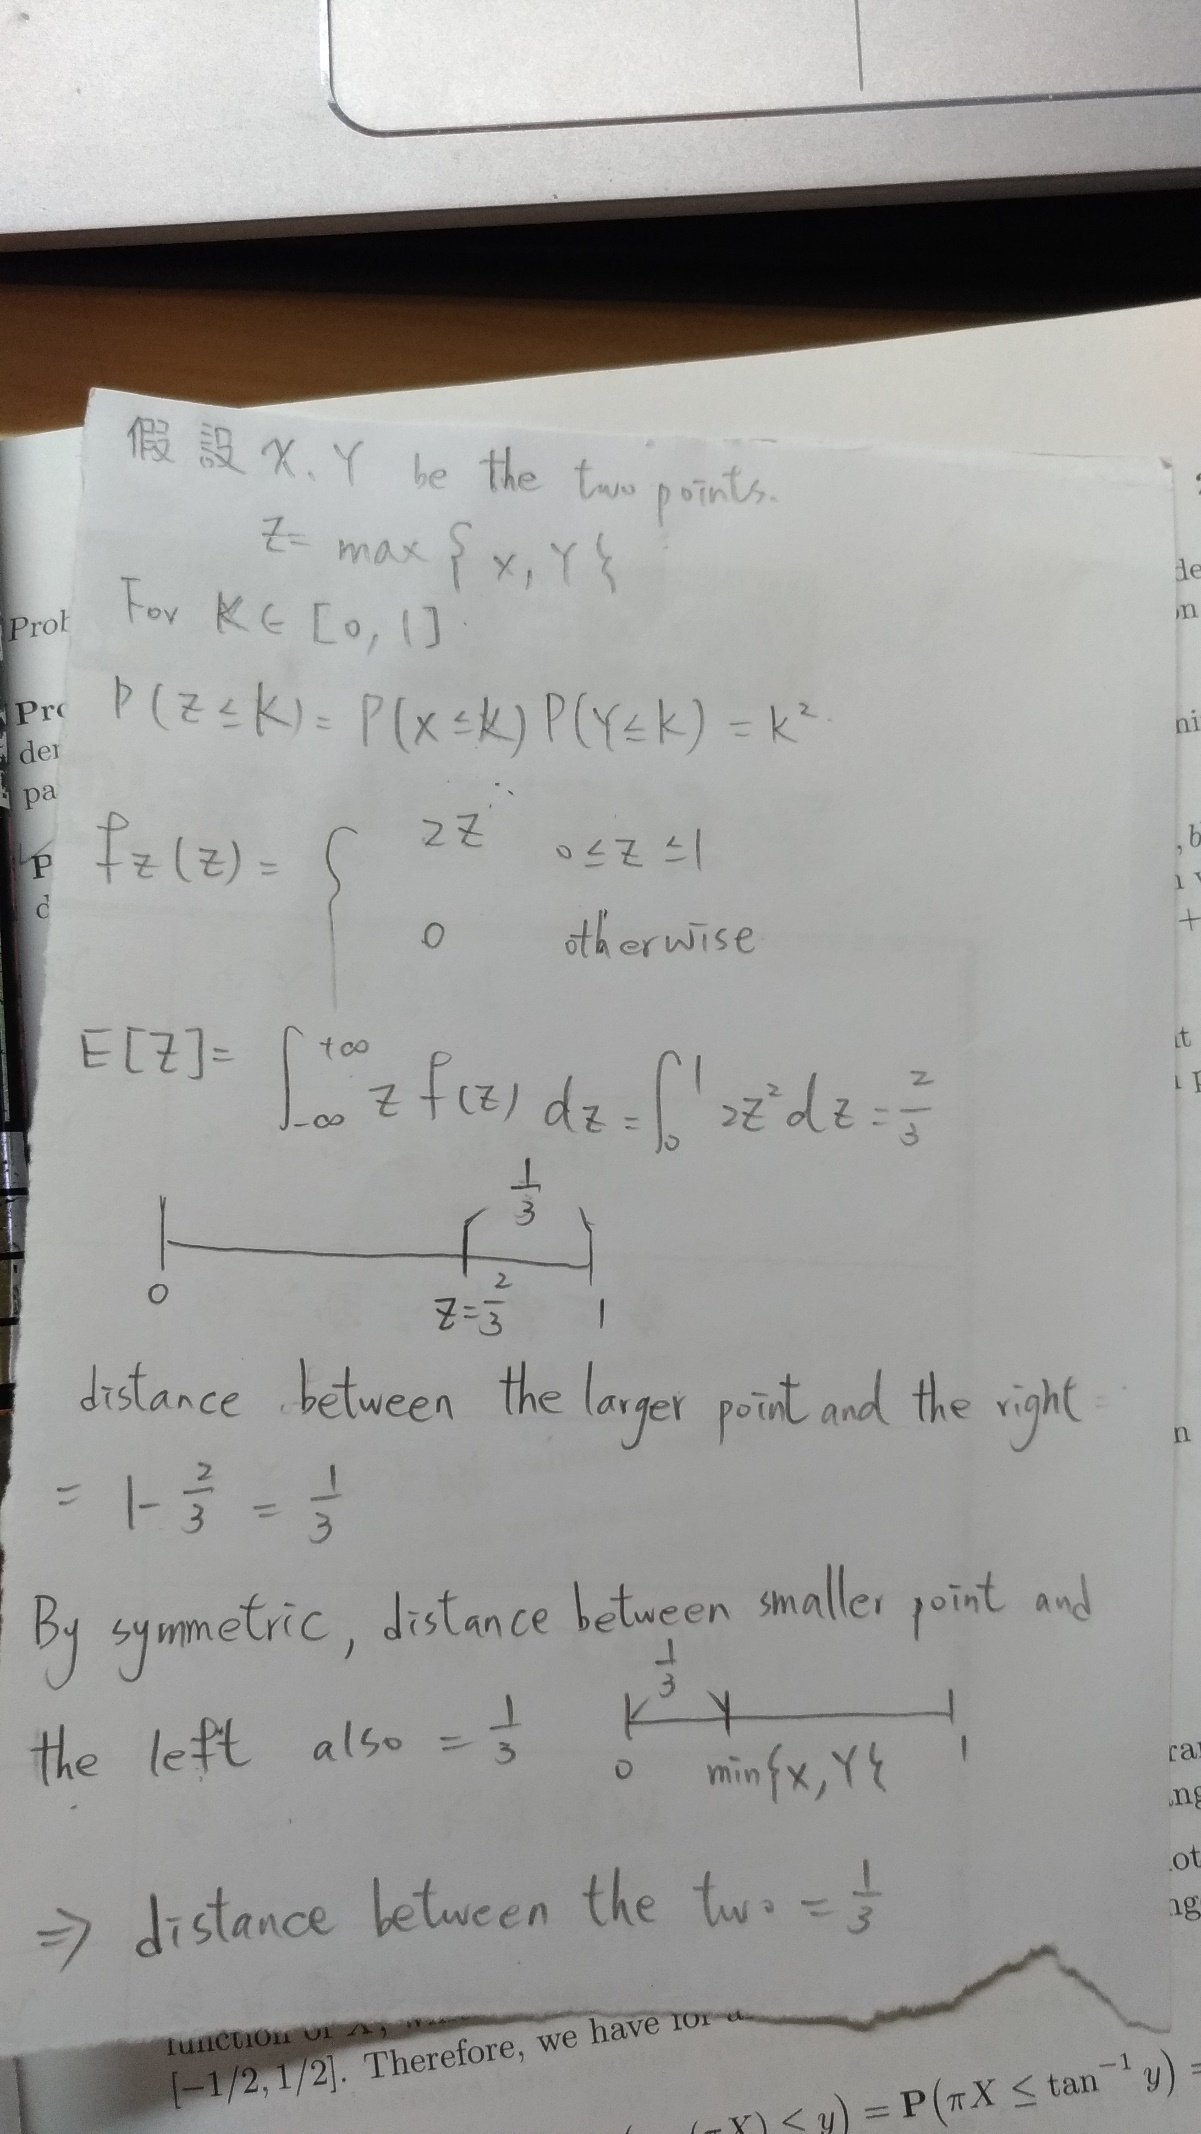 假設 X, Y be the two points.
Z = max { X, Y }
For K ∈ [0, 1]
P(Z ≤ K) = P(X ≤ K) P(Y ≤ K) = K².
∴
f_Z(Z) = { 2Z 0 ≤ Z ≤ 1
0 otherwise
E[Z] = ∫_{-∞}^{+∞} z f(z) dz = ∫_0^1 2z² dz = 2/3
1/3
0 Z = 2/3 1
distance between the larger point and the right
= 1 - 2/3 = 1/3
By symmetric, distance between smaller point and
1/3
the left also = 1/3
0 min{X, Y} 1
⇒ distance between the two = 1/3
[−1/2, 1/2]. Therefore, we have for
X) < y) = P(πX ≤ tan⁻¹ y) =